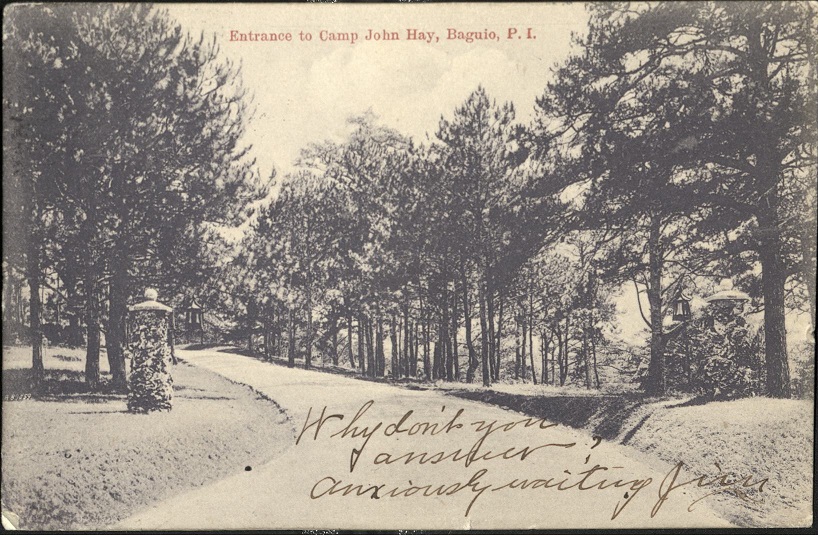 Entrance to Camp John Hay, Baguio, P. I.
Why don't you
answer?
anxiously waiting